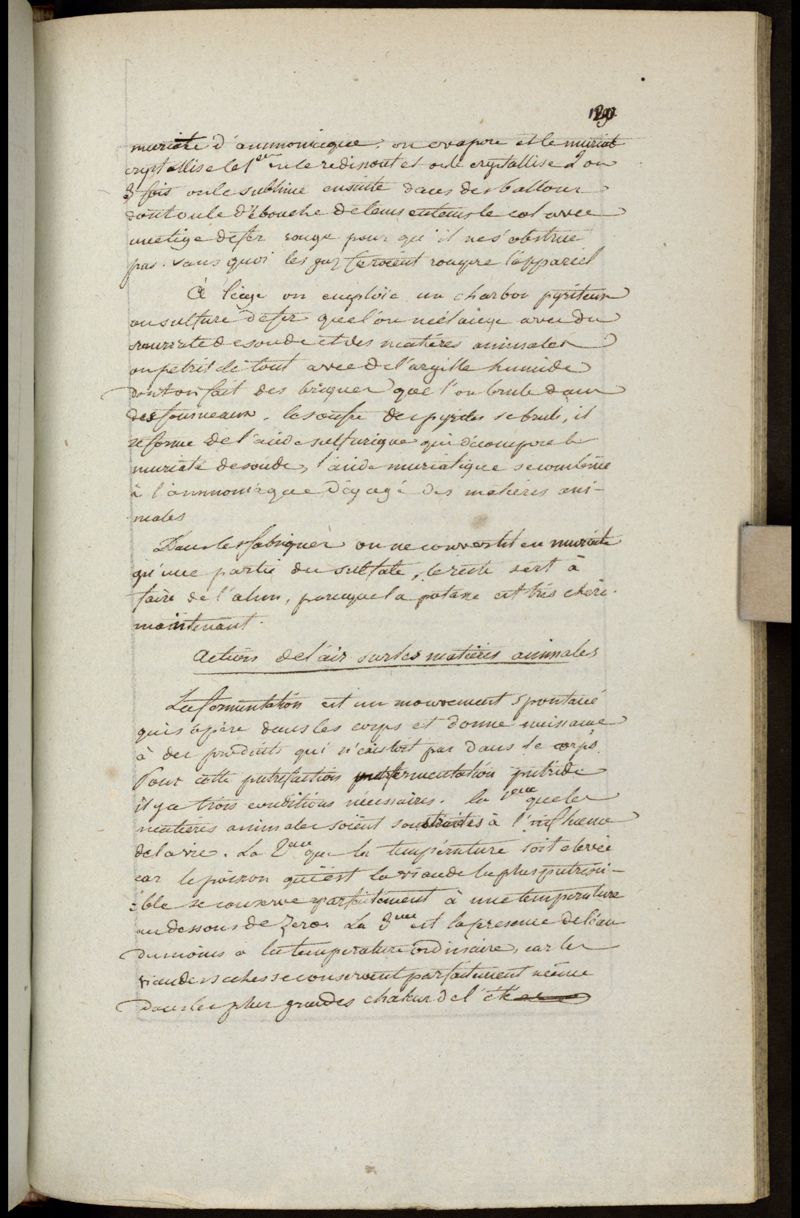 muriate d'ammoniaque. on evapore et le muriat
crystallise le 1er on le redissout et on le crystallise 2 ou
3 fois on le sublime ensuite dans des ballons
dont on le débouche de tems en tems le col avec
une tige de fer rouge pour qu'il ne s'obstrue
pas. sans quoi les gaz feroient rompre l'appareil
A liège on emploie un charbon pyriteux
ou sulfure de fer que l'on mélange avec du
muriate de soude et des matières animales
on petrit le tout avec de l'argille humide
dont on fait des briques que l'on brule dans
des fourneaux. le soufre des pyrites se brule, il
se forme de l'acide sulfurique qui décompose le
muriate de soude, l'acide muriatique se combine
à l'ammoniaque dégagé des matières ani-
males
Dans les fabriques on ne convertit en muriate
qu'une partie du sulfate, le reste sert à
faire de l'alun, parceque la potasse est très chère
maintenant.
Action de l'air sur les matières animales
La fermentation est un mouvement spontané
qui s'opère dans les corps et donne naissance
à des produits qui n'existoit pas dans le corps.
Pour cette putrefaction fermentation putride
il y a trois conditions nécessaires. la 1ere que les
matières animales soient soustraites à l'influence
de la vie. La 2eme que la température soit elevée
car le poisson qui est la viande la plus putresci-
ble se conserve parfaitement à une température
au dessous de Zero. La 3eme est la presence de l'eau
du moins à la température ordinaire, car les
viandes seches se conservent parfaitement même
dans les plus grandes chaleur de l'été